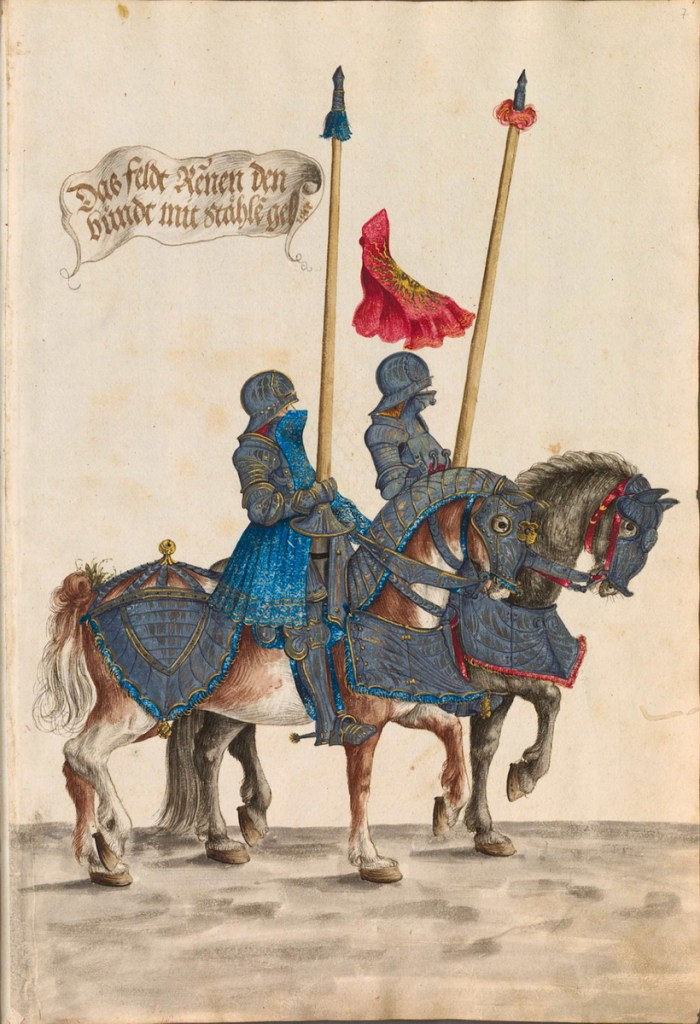 Das feldt Rēnen den
bundt mit Ståhlē gelß